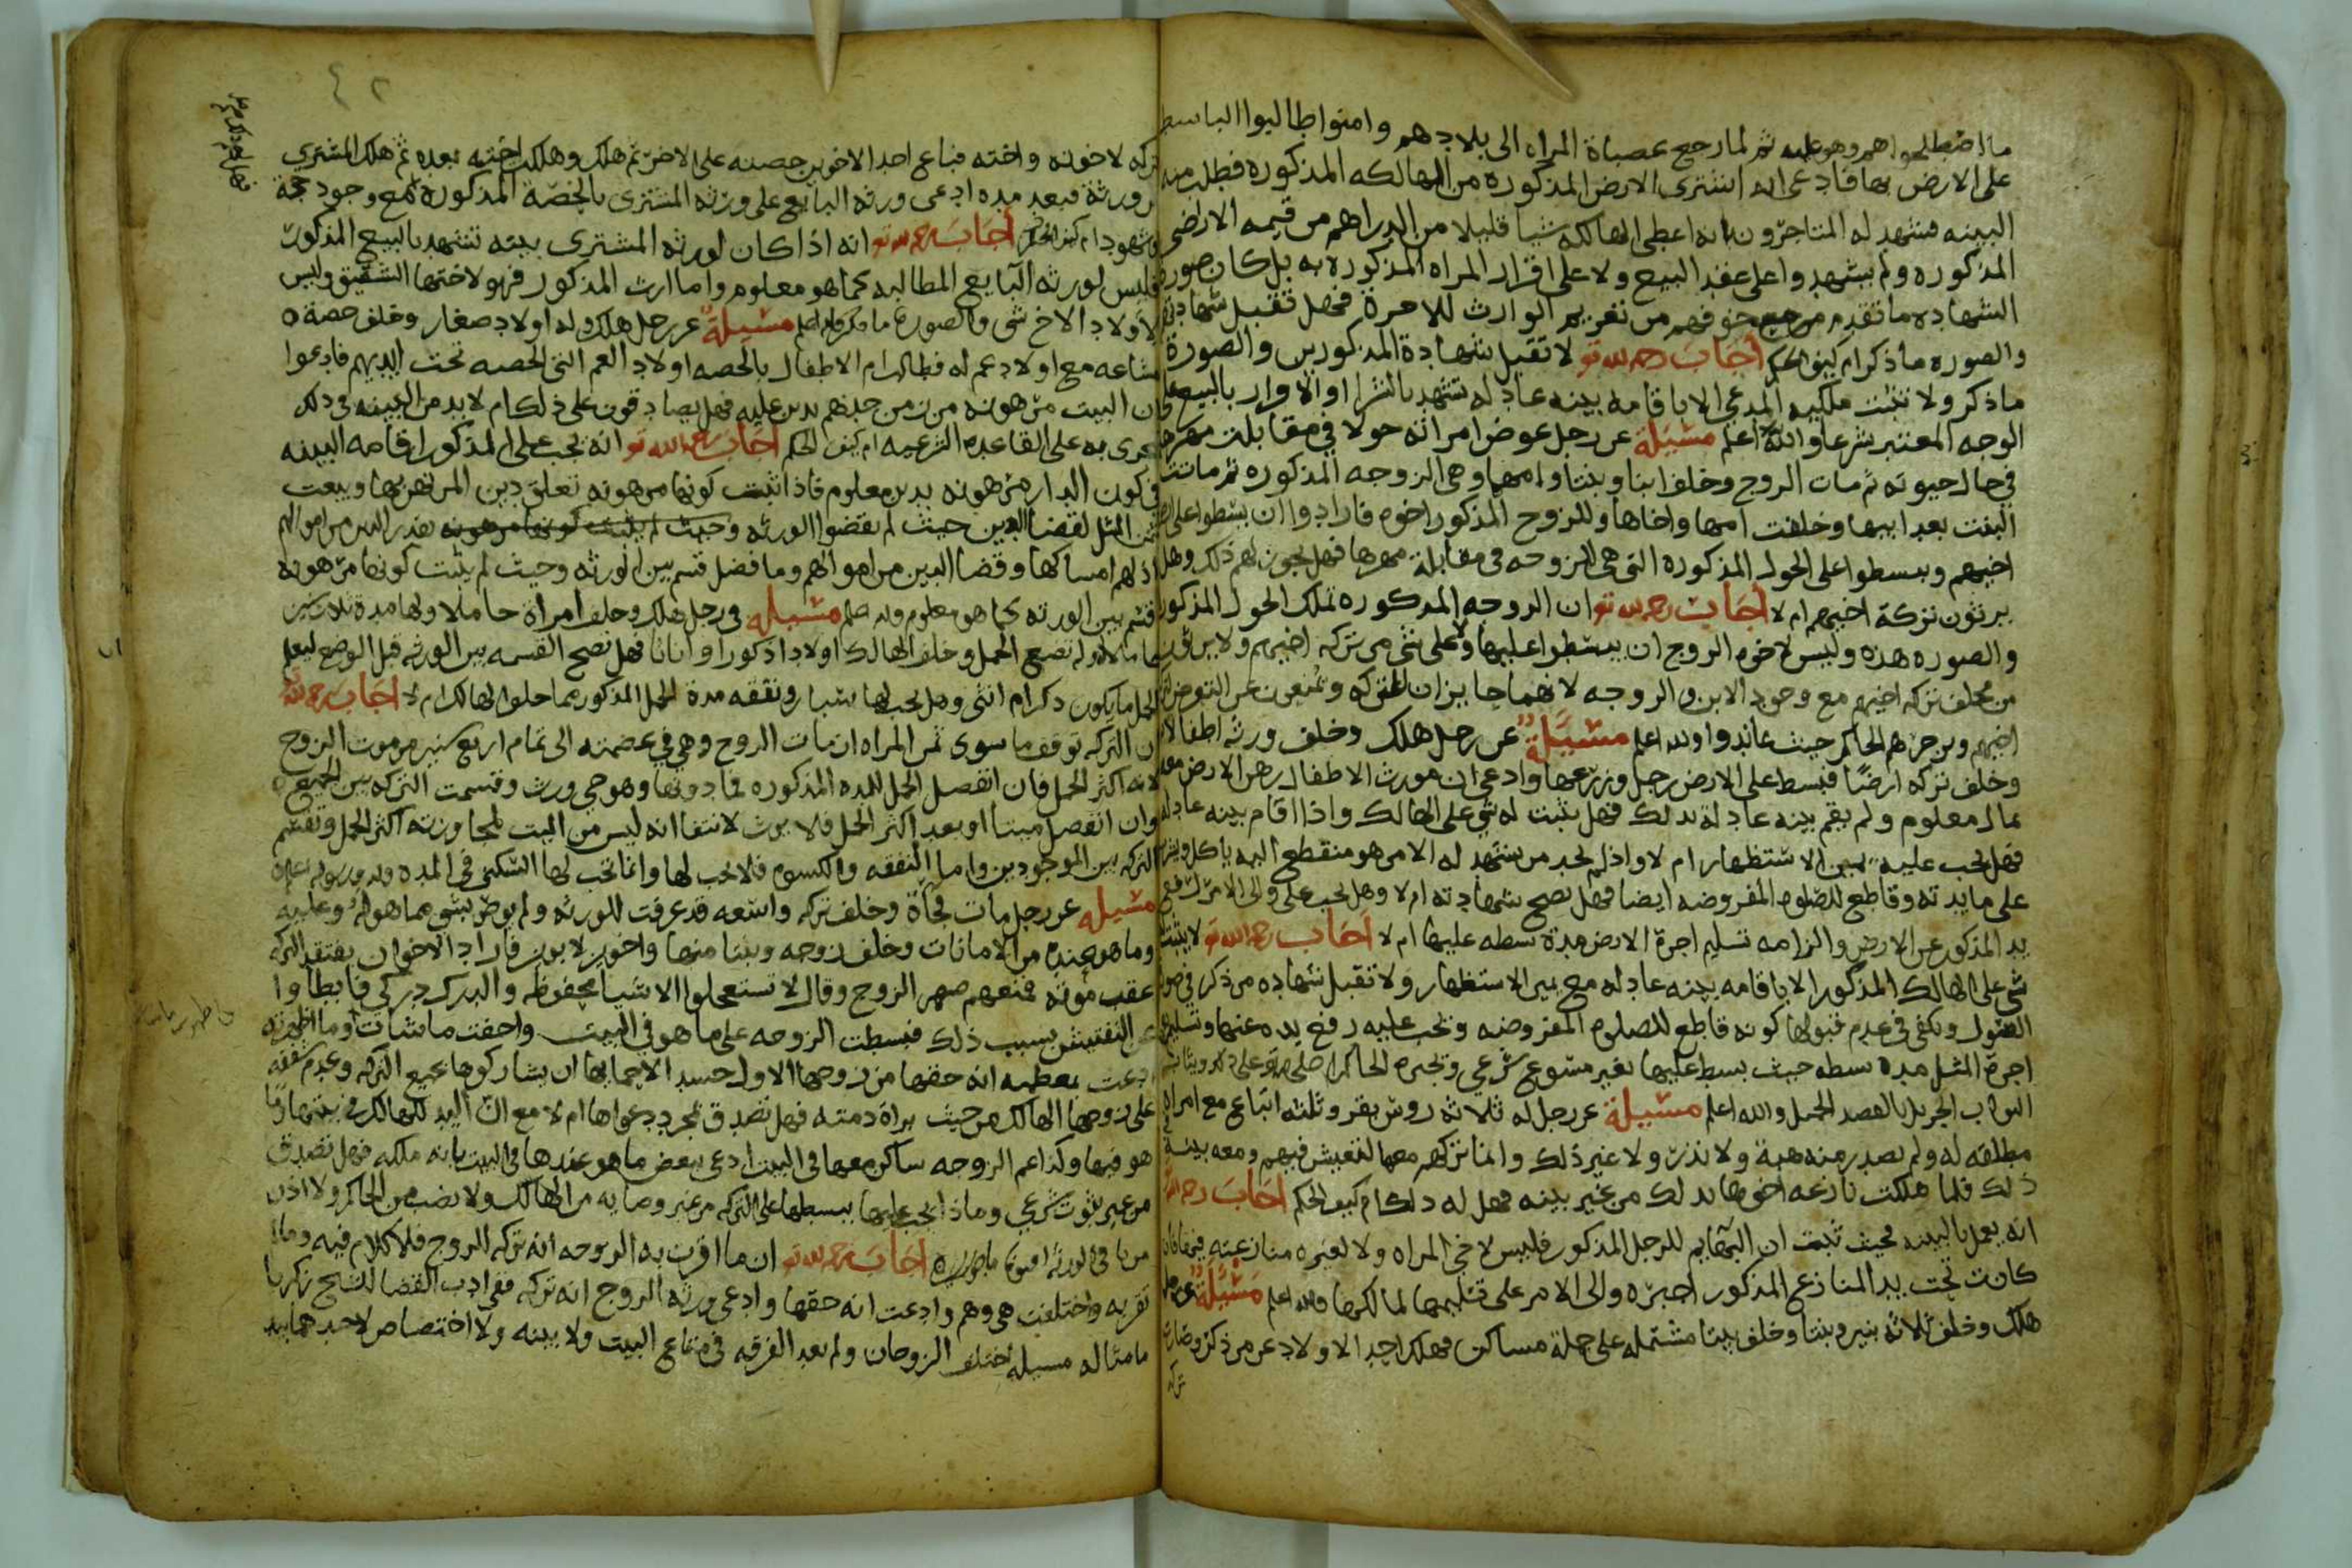 ما اصطلحوا هم وهو عليه ثم لما رجع عصباة المراه الى بلادهم وامنوا طالبوا الباسط
على الارض بها فادعى انه اشترى الارض المذكوره من الهالكه المذكوره فطلب منه
البينه فشهد له المتاجرون انه اعطى الهالكه شيا قليلا من الدراهم من قيمه الاراضي
المذكوره ولم يشهدوا على عقد البيع ولا على اقرار المراه المذكوره به بل كان صورة
الشهاده ما تقدم مع خوفهم من تغريم الوارث للاجرة فهل تقبل شهادتهم
والصوره ما ذكر ام كيف الحكم اجاب رحمه الله تع لا تقبل شهادة المذكورين والصورة
ما ذكر ولا تثبت ملكيه المدعي الا باقامه بينه عادله تشهد بالشرا او الاقرار بالبيع على
الوجه المعتبر شرعا والله اعلم مسيلة عن رجل عوض امراته حولا في مقابلت مهرها
في حال حيوته ثم مات الزوج وخلف ابنا وبنتا وامهما وهي الزوجه المذكوره ثم ماتت
البنت بعد ابيها وخلفت امها واخاها وللزوج المذكور اخوه فارادوا ان يبسطوا على
اخيهم ويبسطوا على الحول المذكوره التي هي الزوجه في مقابلة مهرها فهل يجوز لهم ذلك وهل
يرثون تركة اخيهم ام لا اجاب رحمه الله تع ان الزوجه المذكوره تملك الحول المذكور
والصوره هذه وليس لاخوه الزوج ان يبسطوا عليها ولا على شي من تركه اخيهم ولا يرثون
من مخلف تركه اخيهم مع وجود الابن والزوجه لانهما حايزان للتركه ويمنعون من التعرض
اخيهم ويزجرهم الحاكم حيث عاندوا والله اعلم مسيلة عن رجل هلك وخلف ورثه اطفالا
وخلف تركه ارضا فبسط على الارض رجل وزرعها وادعى ان مورث الاطفال رهن الارض معه
بمال معلوم ولم يقم بينه عادلة بذلك فهل يثبت له شي على الهالك واذا اقام بينه عادله
فهل يجب عليه يمين الاستظهار ام لا واذا لم يجد من يشهد له الا من هو منقطع اليه ياكل ويشرب
على مايدته وقاطع للصلوه المفروضه ايضا فهل تصح شهادته ام لا وهل يجب على ولي الامر رفع
يد المذكور عن الارض والزامه تسليم اجرة الارض مدة بسطه عليها ام لا اجاب رحمه الله تع لا يثبت
شي على الهالك المذكور الا باقامه بينه عادله مع يمين الاستظهار ولا تقبل شهاده من ذكر في
القبول ويكفي في عدم قبولها كونه قاطع للصلوه المفروضه ويجب عليه رفع يده عنها وتسليم
اجرة المثل مدة بسطه حيث بسط عليها بغير مسوغ شرعي ويجبره الحاكم على ذلك ويثاب
الثواب الجزيل بالقصد الجميل والله اعلم مسيلة عن رجل له ثلاثه روس بقر وثلثه اتباع مع امراه
مطلقه له ولم يصدر منه هبة ولا نذر ولا غير ذلك وانما تركهم معها لتعيش فيهم ومعه بينة
ذلك فلما هلكت نازعه اخوها بذلك من غير بينه فهل له ذلك ام كيف الحكم اجاب رحمه الله
انه يعمل بالبينه فحيث ثبت ان البهايم للرجل المذكور فليس لاخي المراه ولا لغيره منازعته
كانت تحت يد المنازع المذكور اجبره والى الامر على تسليمها لمالكها والله اعلم مسيلة عن رجل
هلك وخلف ثلاثه بنين وبنتا وخلف بيتا مشتمله على جملة مساكن فهلك احد الاولاد عن من ذكر وصارت
تركه
٤٢
تركه لاخوته واخته فباع احد الاخوين حصته على الاخر ثم هلك وهلكت اخته بعده ثم هلك المشتري
عن ورثة فبعد مده ادعى ورثه البايع على ورثه المشتري بالحصة المذكورة مع وجود حجة
وشهود ام كيف الحكم اجاب رحمه الله تع انه اذا كان لورثه المشتري بينه تشهد بالبيع المذكور
فليس لورثه البايع المطالبه كما هو معلوم واما ارث المذكور فهو لاختها الشقيق وليس
لاولاد الاخ شي والصورة ما ذكر والله اعلم مسيلة عن رجل هلك وله اولاد صغار وخلف حصة
مشاعه مع اولاد عم له فطالب ام الاطفال بالحصه اولاد العم التي الحصه تحت ايديهم فادعوا
بان البيت مرهونه من زمن جدهم بدين عليه فهل يصادقون على ذلك ام لا بد من البينه في ذلك
تجرى به على القاعده الشرعيه ام كيف الحكم اجاب رحمه الله تع انه يجب على المذكور اقامه البينه
في كون الدار مرهونه بدين معلوم فاذا ثبت كونها مرهونه تعلق دين المرتهن بها وبيعت
بثمن المثل لقضا الدين حيث لم يقضوا الورثه وحيث لم يثبت كونها مرهونه بقدر الدين من اموالهم
اذ لهم امساكها وقضا الدين من اموالهم وما فضل قسم بين الورثه وحيث لم يثبت كونها مرهونه
قسم بين الورثه كما هو معلوم والله اعلم مسيله في رجل هلك وخلف امراة حاملا ولها مدة ثلاث سنين
حاملا ولم تضع الحمل وخلف الهالك اولادا ذكورا واناثا فهل تصح القسمه بين الورثه قبل الوضع ليعلم
الحمل ما يكون ذكر ام انثى وهل يجب لها شيا ونفقه مدة الحمل المذكور مما خلوا لهالك ام لا اجاب رحمه الله
ان التركه توقف ما سوى ثمن المراه ان مات الزوج وهي في عصمته الى تمام اربع سنين من موت الزوج
لانه اكثر الحمل فان انفصل الحمل للمده المذكوره فما دونها وهو حي ورث وقسمت التركه بين الجميع
وان انفصل ميتا او بعد اكثر الحمل فلا يرث لانتفا انه ليس من الميت لمجاوزته اكثر الحمل وتقسم
التركه بين الموجودين واما النفقه والكسوه فلا تجب لها وانما تجب لها السكنى في المده
مسيله عن رجل مات فجاة وخلف تركه واسعه قد عرفت للورثه ولم يوص بشي مما هو له وعليه
وما هو عنده من الامانات وخلف زوجه وبنتا منها واخوين لابوين فاراد الاخوان يفتقد التركه
عقب موته فمنعهم صهر الزوج وقال لا تستعجلوا الاشيا محفوظه والدرك دركي فابطاوا
عن التفتيش بسبب ذلك فبسطت الزوجه على ما هو في البيت واخفت ما شات وما اظهرته
ادعت بعظمه انه حقها من زوجها الاول حسد الاحمايها ان يشاركوها جميع التركه وعدم شفقه
على زوجها الهالك من حيث براة ذمته فهل تصدق بمجرد دعواها ام لا مع ان اليد للهالك في بيتها
هو فيها وكذا عم الزوجه ساكن معها في البيت ادعى ببعض ما هو عندها في البيت بانه ملكه فهل تصدق
من غير ثبوت شرعي وماذا يجب عليها ببسطها على التركه من غير وصايه من الهالك ولا نصب من الحاكم ولا اذن
اجاب رحمه الله تع ان ما اقرت به الزوجه انه تركه الزوج فلا كلام فيه وما لم
تقر به واختلفت هي وهم وادعت انه حقها وادعى ورثه الزوج انه تركه ففي ادب القضا للشيخ زكريا
ما مثاله مسيله اختلف الزوجان ولم بعد الفرقه في متاع البيت ولا بينه ولا اختصاص لاحدهما بيد